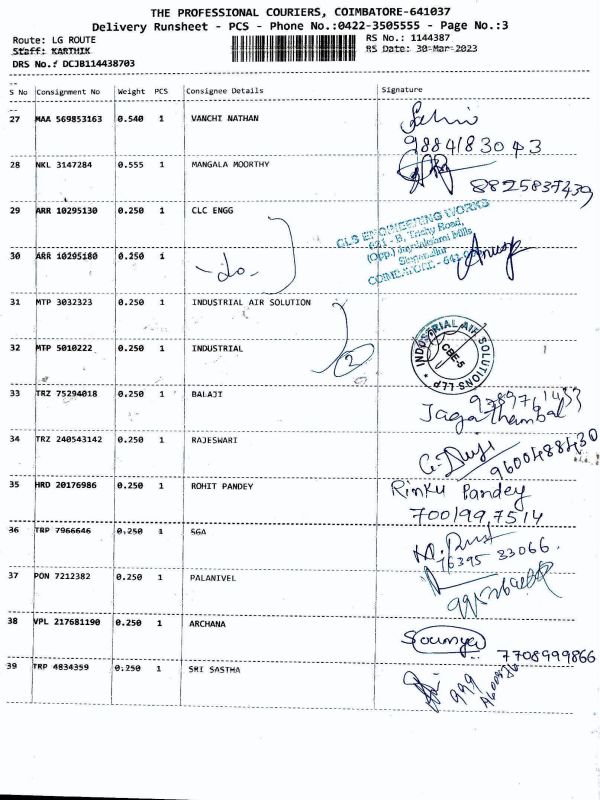 THE PROFESSIONAL COURIERS, COIMBATORE-641037
Delivery Runsheet - PCS - Phone No.:0422-3505555 - Page No.:3
Route: LG ROUTE
RS No.: 1144387
Staff: KARTHIK
RS Date: 30-Mar-2023
DRS No.: DCJB114438703
S No Consignment No Weight PCS Consignee Details Signature
27 MAA 569853163 0.540 1 VANCHI NATHAN
9884183043
28 NKL 3147284 0.555 1 MANGALA MOORTHY
8825837439
29 ARR 10295130 0.250 1 CLC ENGG
GLS ENGINEERING WORKS
621 - B, Trichy Road,
(Opp.) Jayalakshmi Mills
Singanallur
COIMBATORE - 641
30 ARR 10295180 0.250 1 -do-
31 MTP 3032323 0.250 1 INDUSTRIAL AIR SOLUTION
32 MTP 5010222 0.250 1 INDUSTRIAL
2
INDUSTRIAL AIR SOLUTIONS LLP
CBE-5
33 TRZ 75294018 0.250 1 BALAJI
Jagathambal
34 TRZ 240543142 0.250 1 RAJESWARI
9600488430
35 HRD 20176986 0.250 1 ROHIT PANDEY
Rinku Pandey
7001997514
36 TRP 7966646 0.250 1 SGA
76395 33066.
37 PON 7212382 0.250 1 PALANIVEL
38 VPL 217681190 0.250 1 ARCHANA
Soumya
7708999866
39 TRP 4834359 0.250 1 SRI SASTHA
999